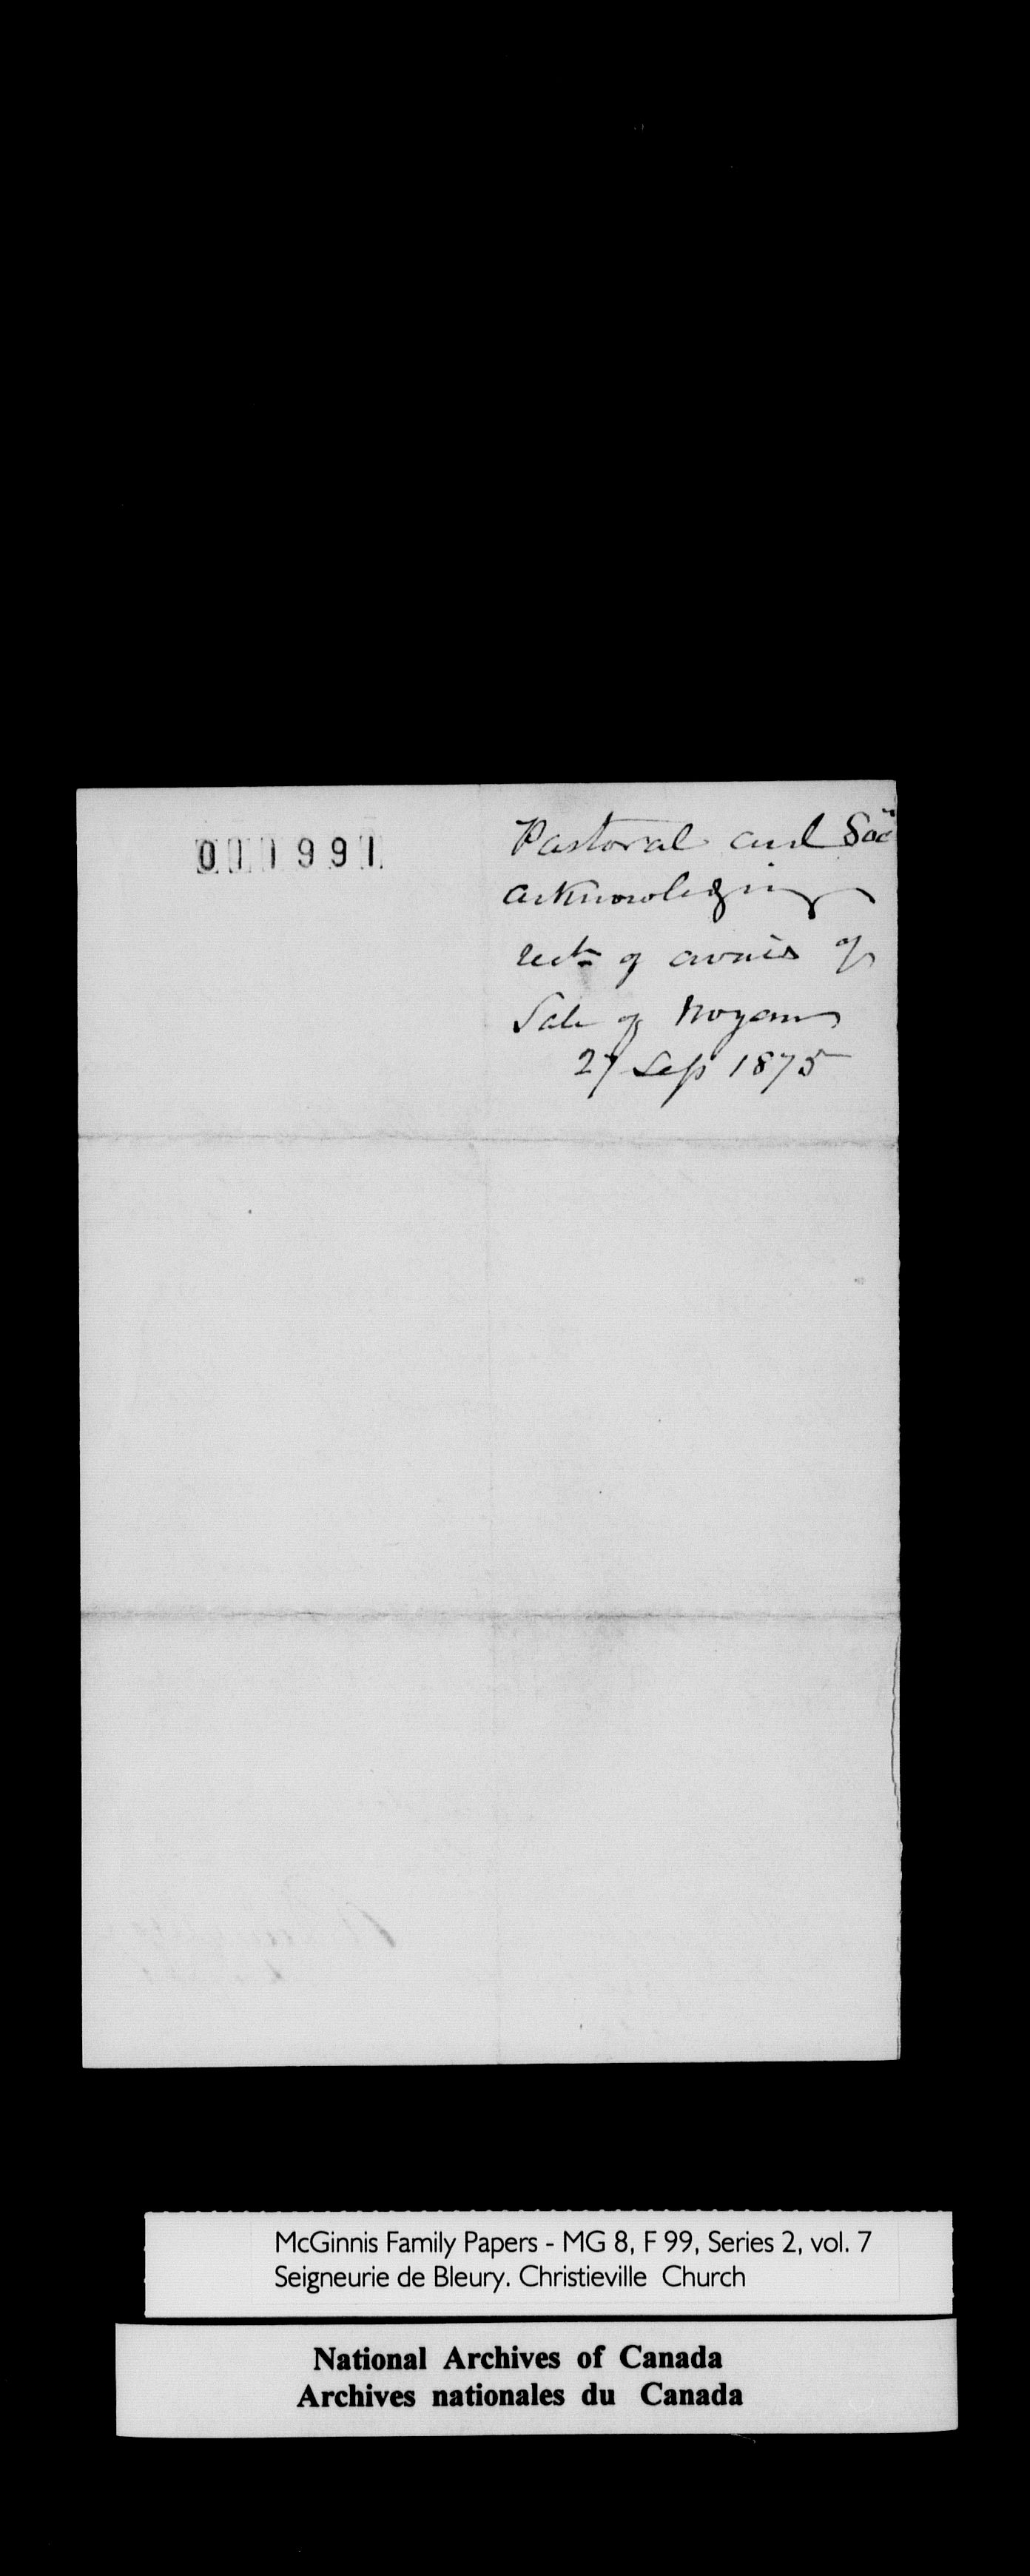 011991
Pastoral aid Soc
acknowledging
rect of avails of
Sale of Noyan
27 Sep 1875
McGinnis Family Papers - MG 8, F 99, Series 2, vol. 7
Seigneurie de Bleury. Christieville Church
National Archives of Canada
Archives nationales du Canada